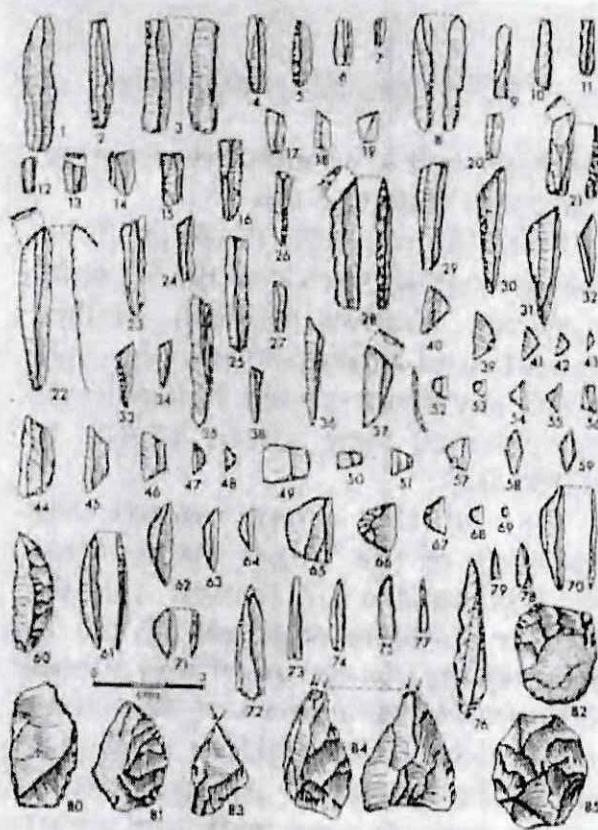 1 2 3 4 5 6 7 8 9 10 11
12 13 14 15 16 17 18 19 20 21
22 23 24 25 26 27 28 29 30 31 32
33 34 35 38 36 37 40 39 41 42 43
52 53 54 55 56
44 45 46 47 48 49 50 51 57 58 59
60 61 62 63 64 65 66 67 68 69 70
71 72 73 74 75 77 76 79 78 82
0 3
80 81 83 84 85